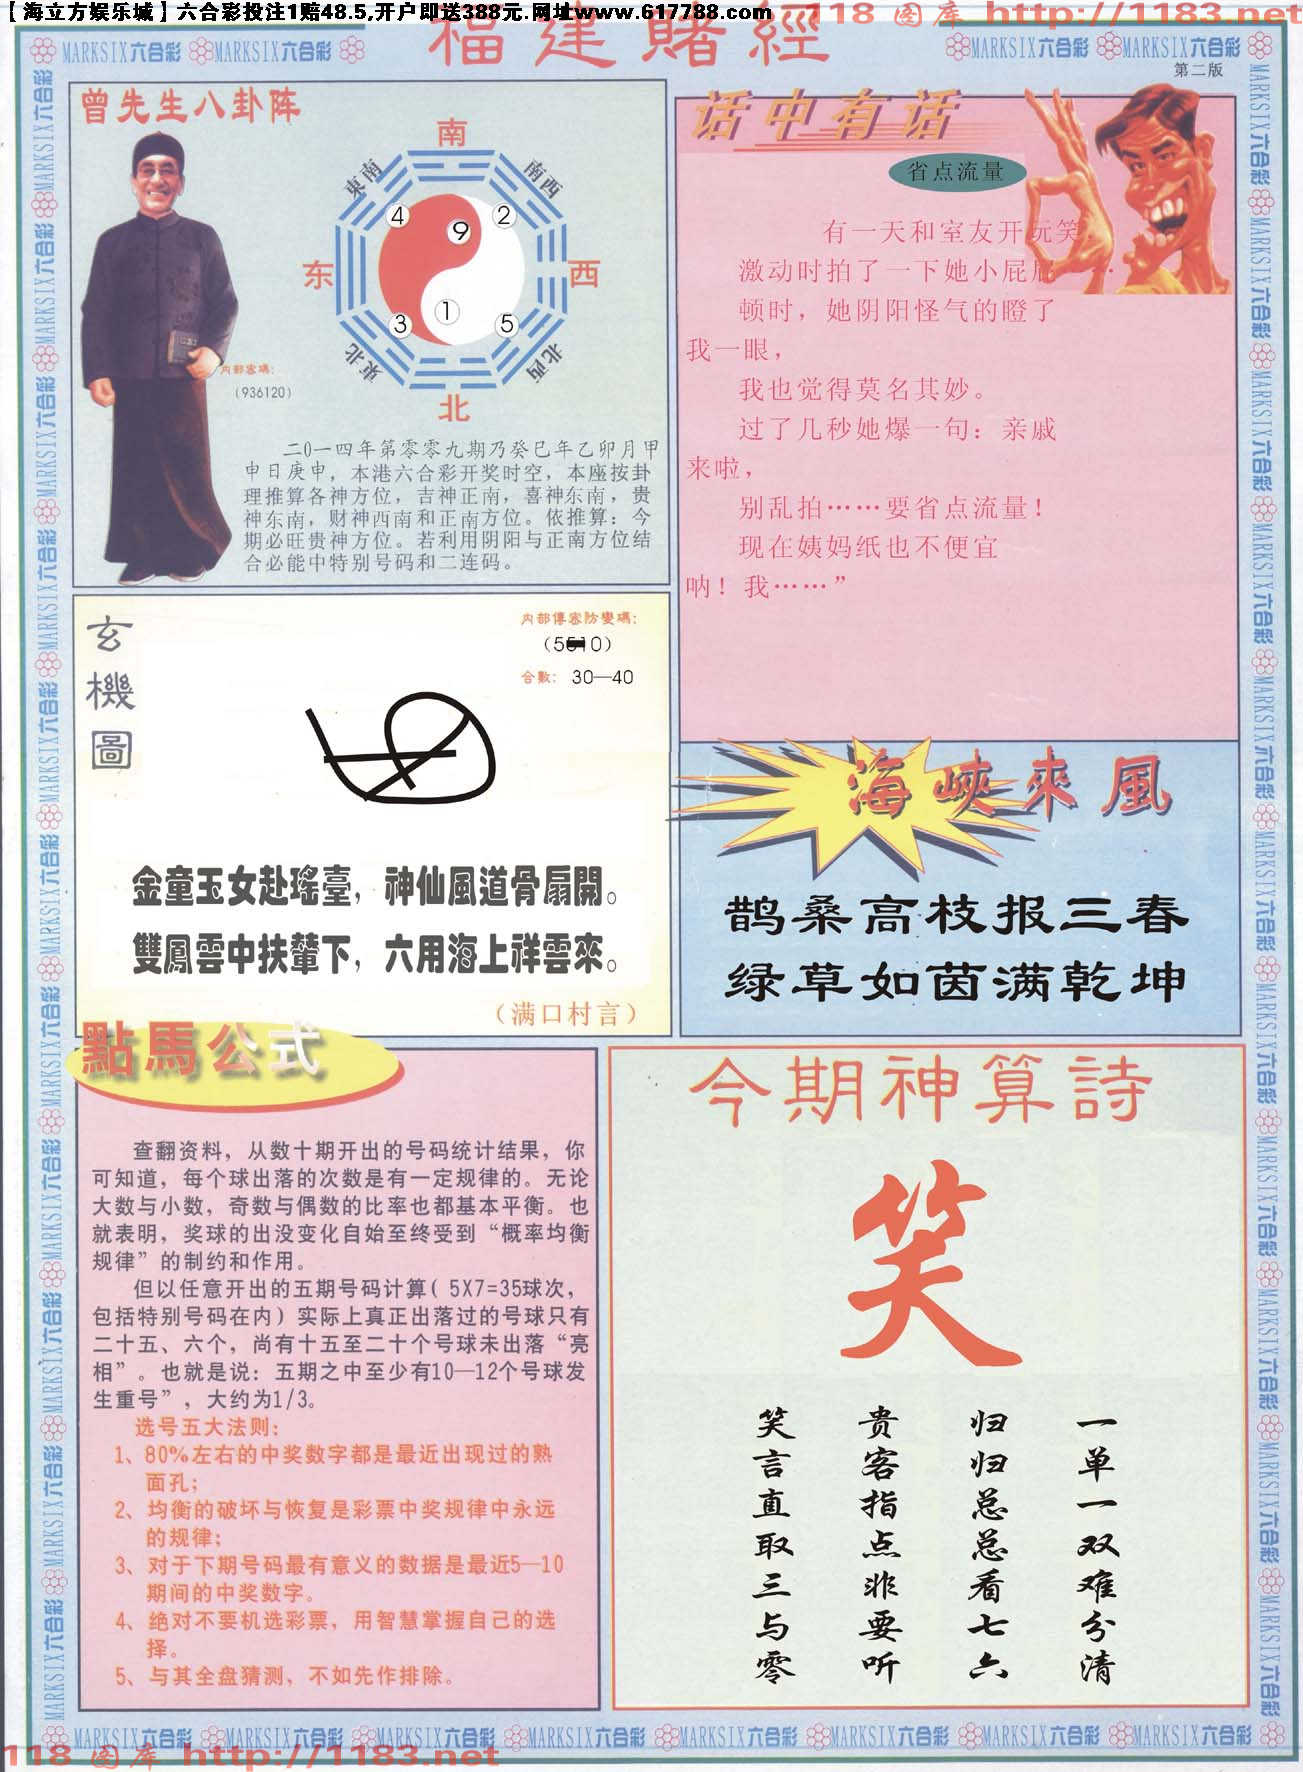 【海立方娱乐城】六合彩投注1赔48.5,开户即送388元.网址www.617788.com
118 图库 http://1183.net
福建赌經
MARKSIX六合彩 MARKSIX六合彩
MARKSIX六合彩 MARKSIX六合彩
第二版
曾先生八卦阵
南
東南 南西
4 9 2
东 西
3 1 5
東北 北西
北
内部密碼:
(936120)
二0一四年第零零九期乃癸巳年乙卯月甲
申日庚申，本港六合彩开奖时空，本座按卦
理推算各神方位，吉神正南，喜神东南，贵
神东南，财神西南和正南方位。依推算：今
期必旺贵神方位。若利用阴阳与正南方位结
合必能中特别号码和二连码。
话中有话
省点流量
有一天和室友开玩笑，
激动时拍了一下她小屁屁……
顿时，她阴阳怪气的瞪了
我一眼，
我也觉得莫名其妙。
过了几秒她爆一句：亲戚
来啦，
别乱拍……要省点流量！
现在姨妈纸也不便宜
呐！我……”
玄機圖
内部傳密防變碼:
合數: 30—40
金童玉女赴瑤臺，神仙風道骨扇開。
雙鳳雲中扶輦下，六用海上祥雲來。
（满口村言）
海峽來風
鹊桑高枝报三春
绿草如茵满乾坤
點馬公式
查翻资料，从数十期开出的号码统计结果，你
可知道，每个球出落的次数是有一定规律的。无论
大数与小数，奇数与偶数的比率也都基本平衡。也
就表明，奖球的出没变化自始至终受到“概率均衡
规律”的制约和作用。
但以任意开出的五期号码计算( 5X7=35球次，
包括特别号码在内) 实际上真正出落过的号球只有
二十五、六个，尚有十五至二十个号球未出落“亮
相”。也就是说：五期之中至少有10—12个号球发
生重号”，大约为1/3。
选号五大法则:
1、80%左右的中奖数字都是最近出现过的熟
面孔;
2、均衡的破坏与恢复是彩票中奖规律中永远
的规律;
3、对于下期号码最有意义的数据是最近5—10
期间的中奖数字。
4、绝对不要机选彩票，用智慧掌握自己的选
择。
5、与其全盘猜测，不如先作排除。
今期神算詩
笑
一单一双难分清
归归总总看七六
贵客指点非要听
笑言直取三与零
MARKSIX六合彩 MARKSIX六合彩 MARKSIX六合彩 MARKSIX六合彩 MARKSIX六合彩 MARKSIX六合彩 MARKSIX六合彩 MARKSIX六合彩
118 图库 http://1183.net